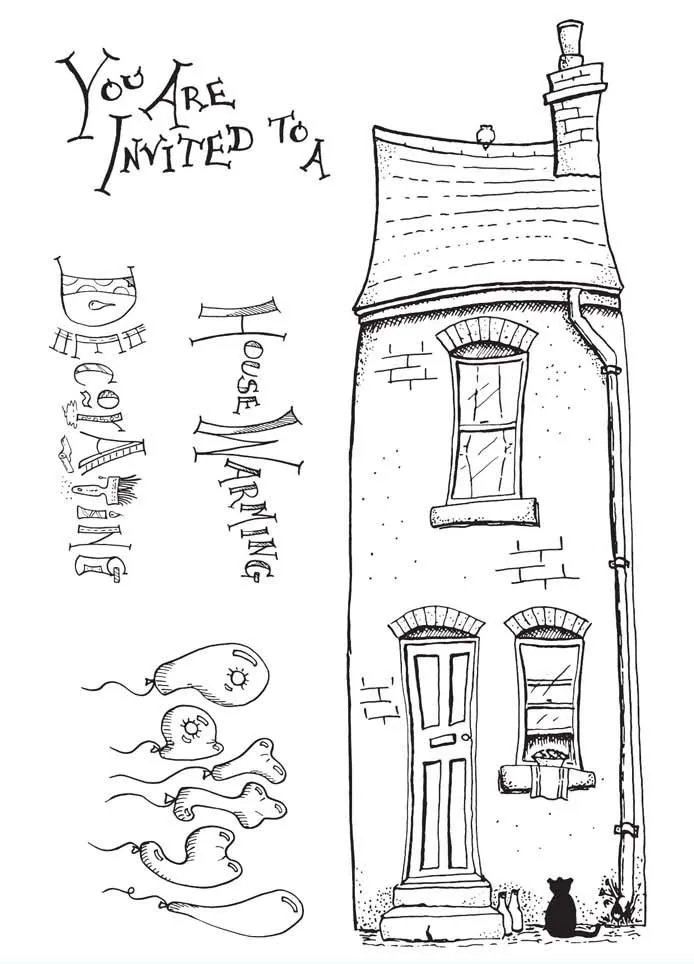 YOU ARE
INVITED TO A
DECORATING
HOUSE WARMING